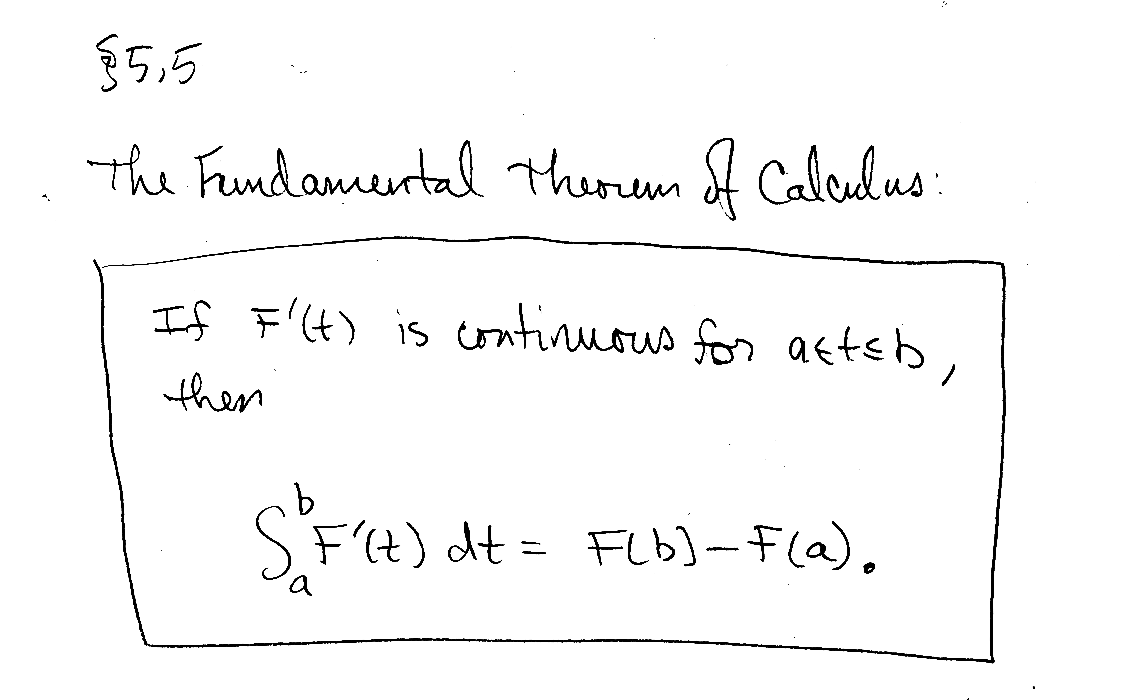 §5.5
The Fundamental Theorem of Calculus:
If F'(t) is continuous for a≤t≤b,
then
∫_a^b F'(t) dt = F(b) - F(a).